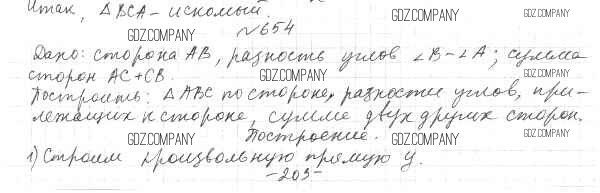 Итак, ΔBCA - искомый.
GDZ.COMPANY GDZ.COMPANY GDZ.COMPANY
№654
Дано: сторона AB, разность углов ∠B-∠A; сумма
сторон AC+CB. GDZ.COMPANY GDZ.COMPANY
Построить: ΔABC по стороне, разности углов, при-
лежащих к стороне, сумме двух других сторон.
GDZ.COMPANY Построение. GDZ.COMPANY GDZ.COMPANY
1) Строим произвольную прямую y.
-203-